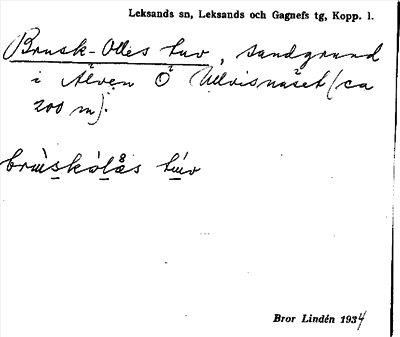 Leksands sn, Leksands och Gagnefs tg, Kopp. l.
Brusk-Olles tuv, sandgrund
i Älven Ö Ulvisnäset (ca
200 m).
brùskólås túv
Bror Lindén 1934